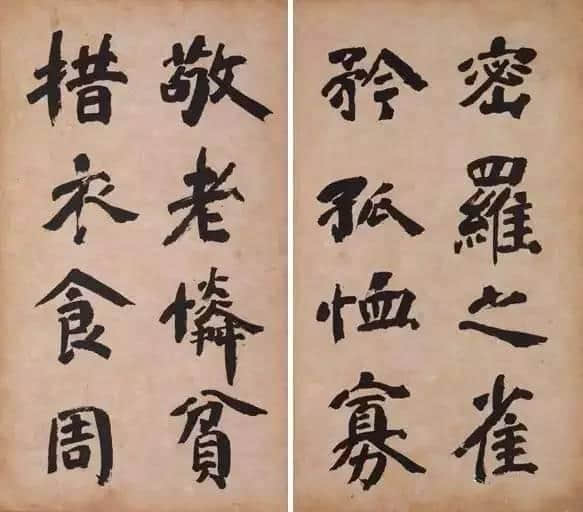 密羅之雀
矜孤恤寡
敬老憐貧
措衣食周